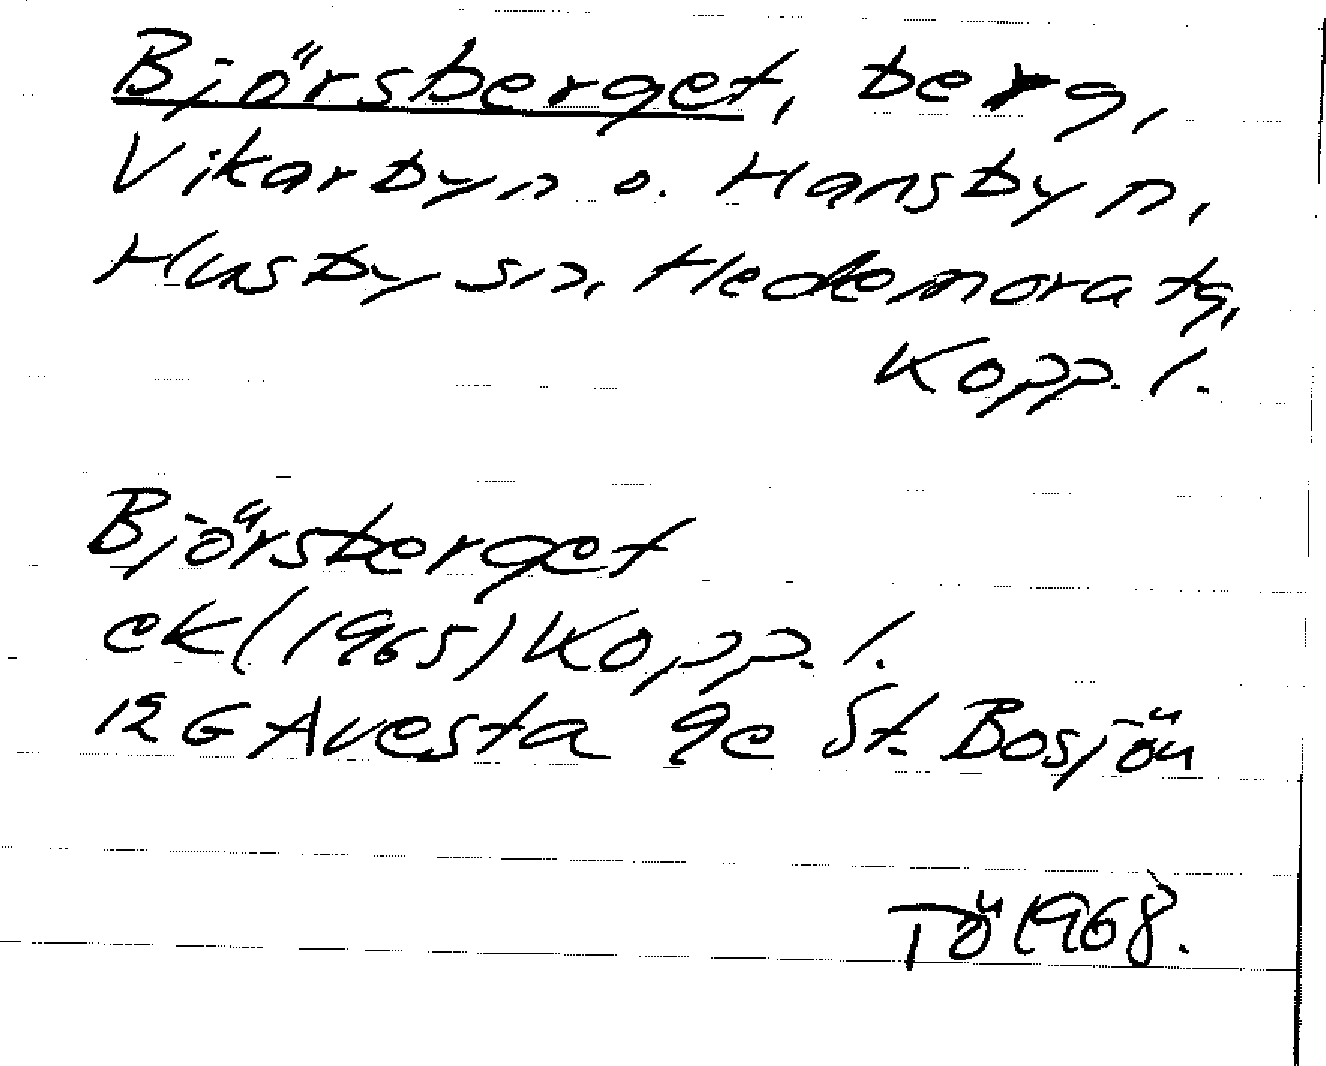 Björsberget, berg,
Vikarbyn o. Hansbyn,
Husby sn, Hedemora tg,
Kopp. l.
Björsberget
ek (1965) Kopp. l.
12 G Avesta 9e St. Bosjön
TÖ 1968.